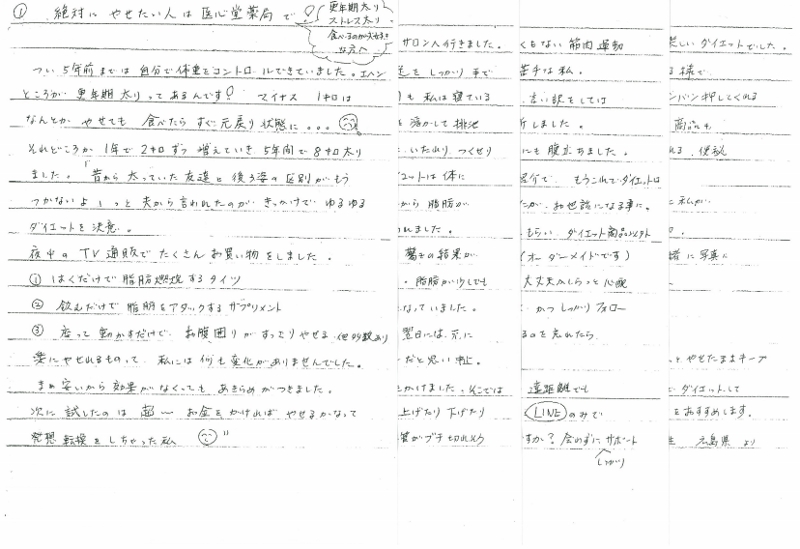 ① 絶対に やせたい人は 医心堂薬局で!
更年期太り
ストレス太り
食べるのが大好き
な方へ
つい5年前までは自分で体重をコントロールできていました。
ところが 更年期太りってあるんです! マイナス 1キロは
なんとか やせても 食べたら すぐ元戻り状態に。。。
それどころか 1年で 2キロずつ 増えていき 5年間で 8キロ太り
ました。「昔から 太っていた 友達と 後ろ姿の 区別が もう
つかないよ」っと 夫から 言われたのが きっかけで ゆるゆる
ダイエットを 決意。
夜中の TV通販で たくさん お買い物をしました。
① はくだけで 脂肪燃焼する タイツ
② 飲んだけで 脂肪を アタックする サプリメント
③ 座って 動かすだけで お腹囲りが すっきりやせる 他多数あり
楽にやせれるものって 私には 何も変化が ありませんでした。
まぁ 安いから 効果が なくっても あきらめが つきました。
次に 試したのは 超〜 お金を かければ やせるかなって
発想転換を しちゃった 私
サロンへ 行きました。
をしっかり
も 私は 寝ている
を 溶かして 排泄
いたわり、つくせり
エットは 体に
から 脂肪が
れました。
驚きの 結果が
。脂肪が 少しでも
なって いました。
翌日には、元に
だと思い 中止。
をかけました。そこでは
上げたり 下げたり
がブチ切れそう
くもない 筋肉運動
苦手な 私。
言い訳を しては
しました。
にも 腹が たちました。
もうこれで ダイエットロ
たが、お世話になる事に。
もらい、ダイエット商品以外
(オーダーメイドです)
大丈夫かしらっと 心配
かつ しっかり フォロー
るのを 忘れたら
遠距離でも
LINE のみで
すか? 念のずに サポート
しっかり
楽しい ダイエットでした。
る 様で
バン 押してくれる
商品も
れる、便秘
に 私が
緒に 写真に
やせたまま キープ
で ダイエットして
を おすすめします。
広島県 より